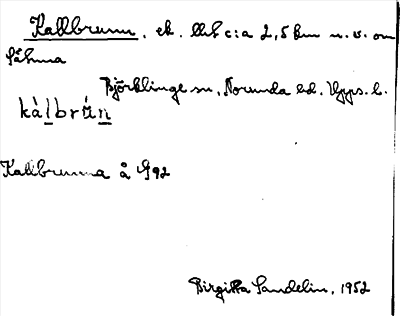 Kallbrunn, ek. 
c:a 2,5 km n.v. om
Björklinge sn, Norunda hd. Upps. l.
kàlbrún
Kallbrunna å
Birgitta Sandelin, 1952